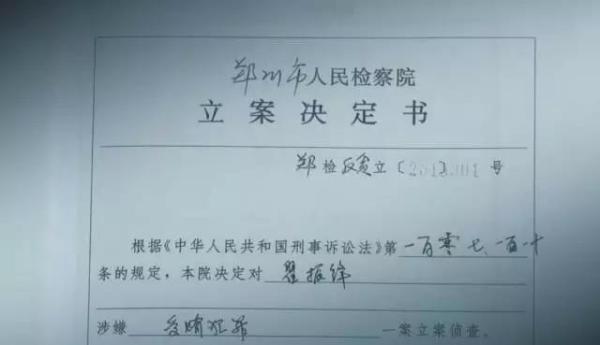 郑州市人民检察院
立案决定书
郑检反贪立〔201 〕001号
根据《中华人民共和国刑事诉讼法》第一百零七、一百一十
条的规定,本院决定对翟振锋
涉嫌受贿犯罪一案立案侦查。